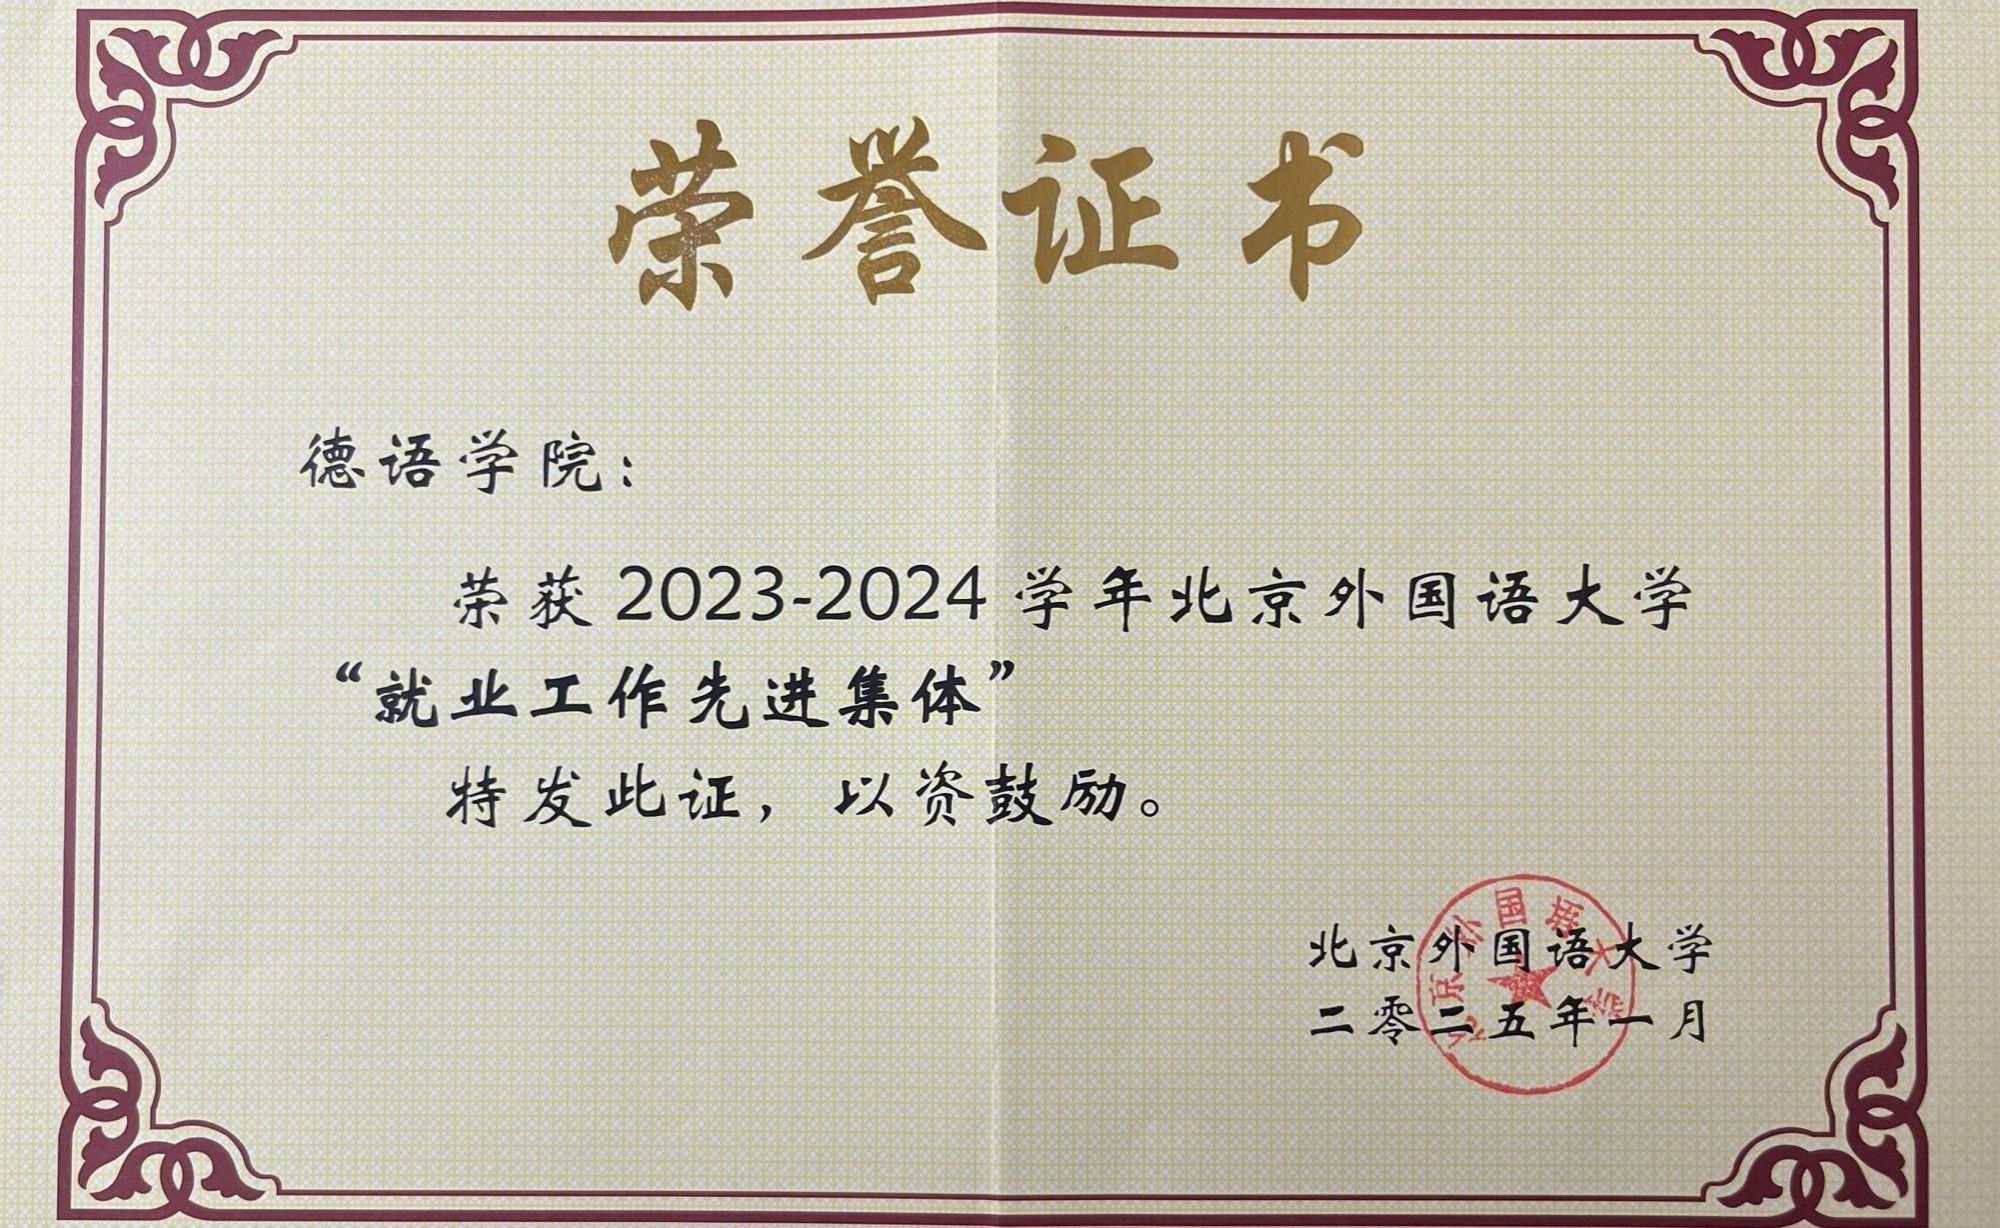 荣誉证书
德语学院：
荣获2023-2024学年北京外国语大学
“就业工作先进集体”
特发此证，以资鼓励。
北京外国语大学
二零二五年一月
北京外国语大学